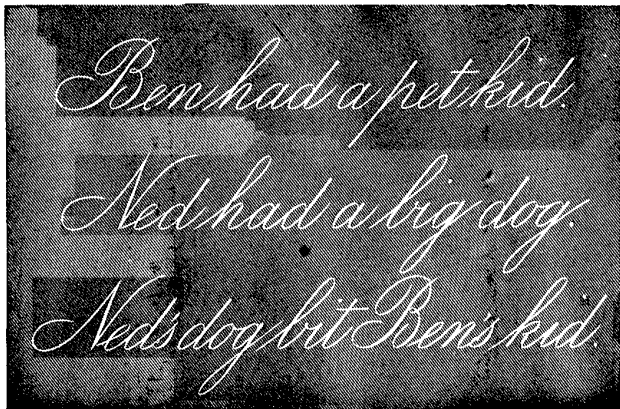 Ben had a pet kid.
Ned had a big dog.
Ned's dog bit Ben's kid.